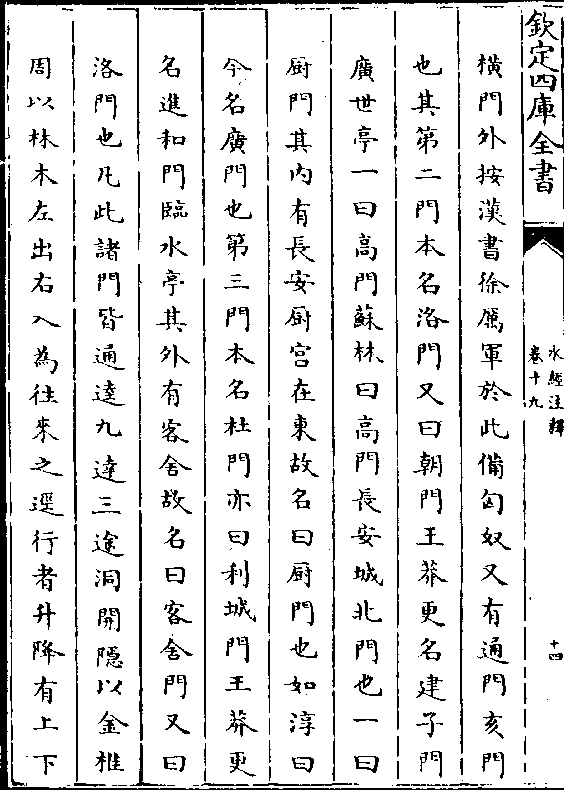 欽定四庫全書
水經注釋
卷十九
十四
橫門外按漢書徐厲軍於此備匈奴又有通門亥門
也其第二門本名洛門又曰朝門王莽更名建子門
廣世亭一曰高門蘇林曰高門長安城北門也一曰
厨門其内有長安厨官在東故名曰厨門也如淳曰
今名廣門也第三門本名杜門亦曰利城門王莽更
名進和門臨水亭其外有客舍故名曰客舍門又曰
洛門也凡此諸門皆通達九逵三途洞開隱以金椎
周以林木左出右入為徃來之逕行者升降有上下